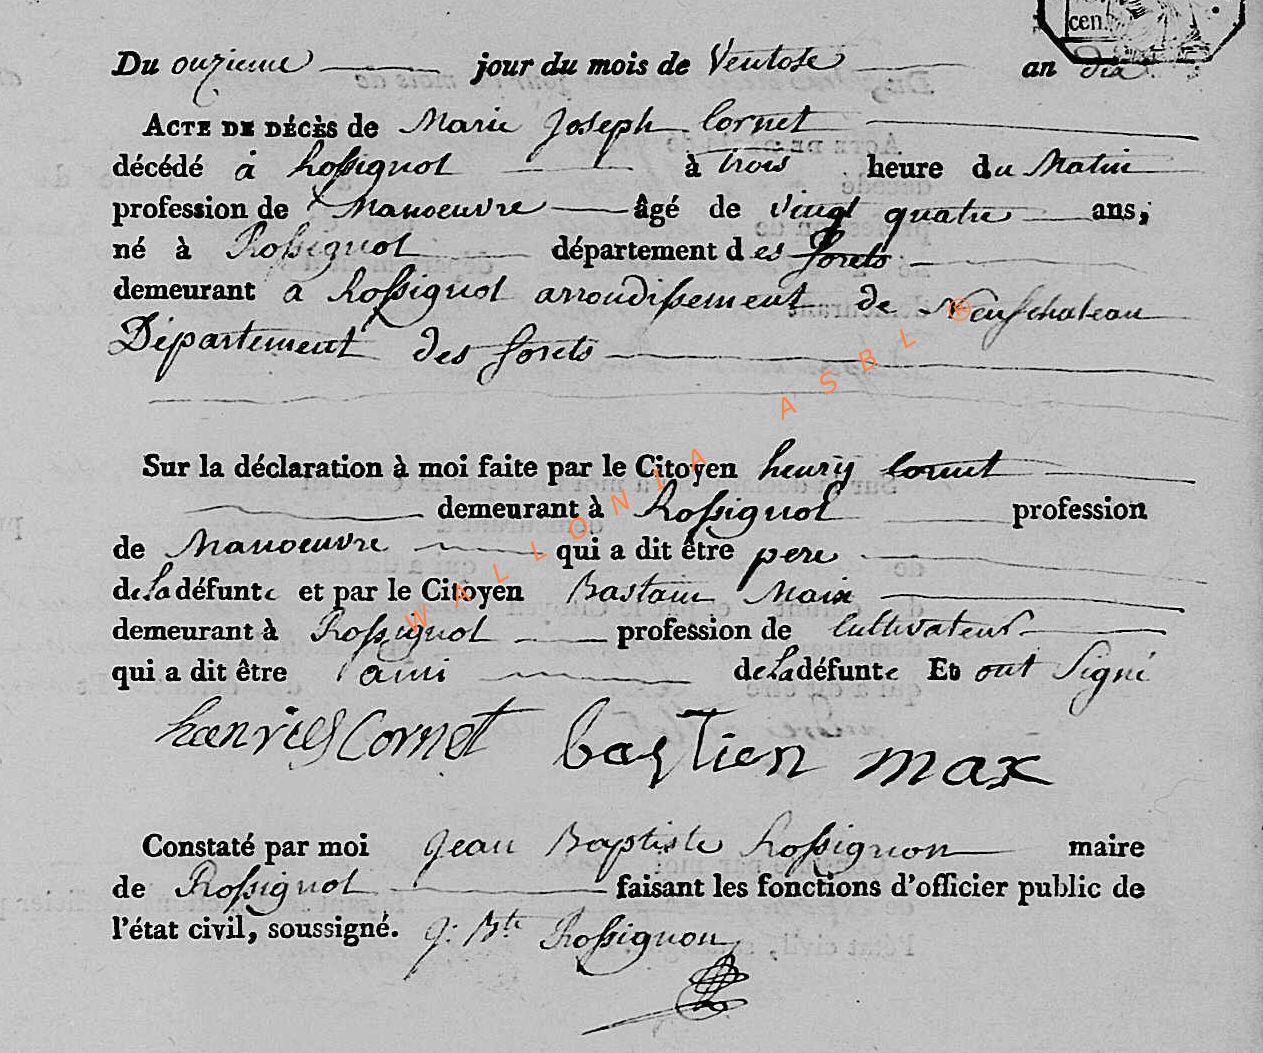 cen.
Du onzieme jour du mois de Ventose an dix
ACTE DE DÉCÈS de Marie Joseph Cornet
décédé à Rossignol à trois heure du Matin
profession de Manoeuvre âgé de vingt quatre ans,
né à Rossignol département des forets
demeurant a Rossignol arrondissement de Neufchateau
Département des forets
Sur la déclaration à moi faite par le Citoyen henry Cornet
demeurant à Rossignol profession
de Manoeuvre qui a dit être pere
de la défunte et par le Citoyen Bastain
demeurant à Rossignol profession de Cultivateur
qui a dit être ami de la défunte Et ont Signé
Cornet bastien max
Constaté par moi Jean Baptiste Rossignon maire
de Rossignol faisant les fonctions d'officier public de
l'état civil, soussigné. J. Bte Rossignon
WALLONIA ASBL ®